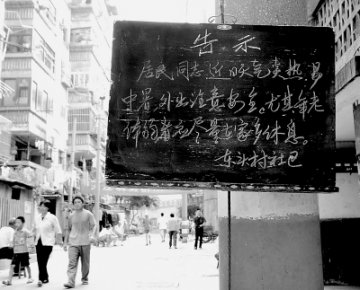 告示
居民同志近日天气炎热,易
中暑外出注意安全。尤其年老
体弱者应尽量在家多休息。
东头村社区